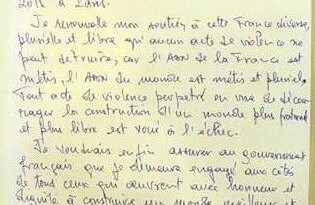 2015 à Paris.
Je renouvelle mon soutien à cette France diverse,
plurielle et libre qu'aucun acte de violence ne
peut détruire, car l'ADN de la France est
métis, l'ADN du monde est métis et pluriel.
Tout acte de violence perpétré en vue de décou-
rager la construction d'un monde plus fraternel
et plus libre est voué à l'échec.
Je voudrais enfin assurer au gouvernement
français que je demeure engagé aux côtés
de tous ceux qui œuvrent avec honneur et
dignité à construire un monde meilleur et